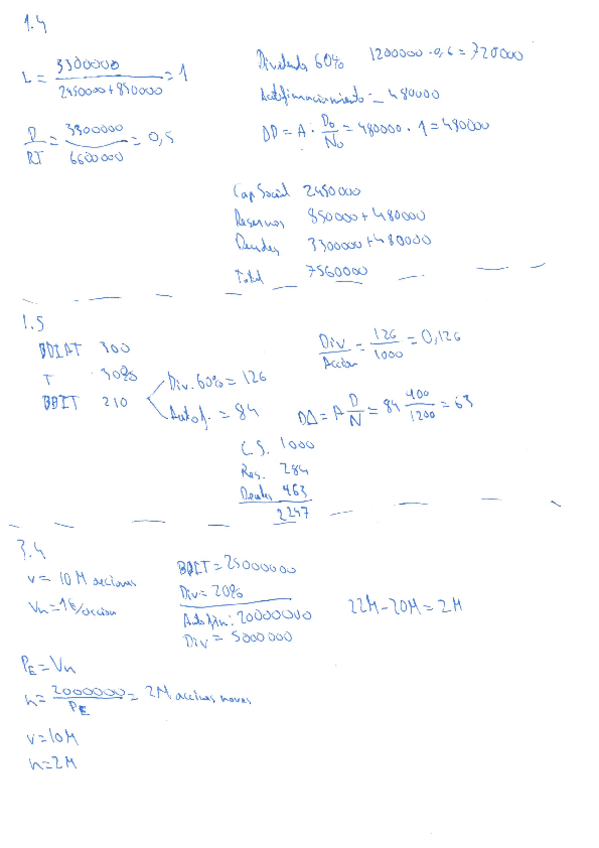 1.4
L = 3300000 / 2450000+850000 = 1
D / RT = 3300000 / 6600000 = 0,5
Dividendo 60% 1200000·0,6 = 720000
Autofinanciamiento = 480000
DD = A · D₀/N₀ = 480000 · 1 = 480000
Cap Social 2450000
Reservas 850000+480000
Deudas 3300000+480000
Total 7560000
1.5
BDIAT 300
T 30%
BDIT 210
Div. 60% = 126
Autof. = 84
Div / Accion = 126 / 1000 = 0,126
DΔ = A D/N = 84 400/1200 = 63
C.S. 1000
Res. 284
Deudas 463
2247
3.4
v = 10 M acciones
Vn = 1€/accion
BDIT = 25000000
Div = 20%
Autofin: 20000000
Div = 5000000
22M - 20M = 2M
PE = Vn
n = 2000000 / PE = 2M acciones novas
v = 10M
n = 2M